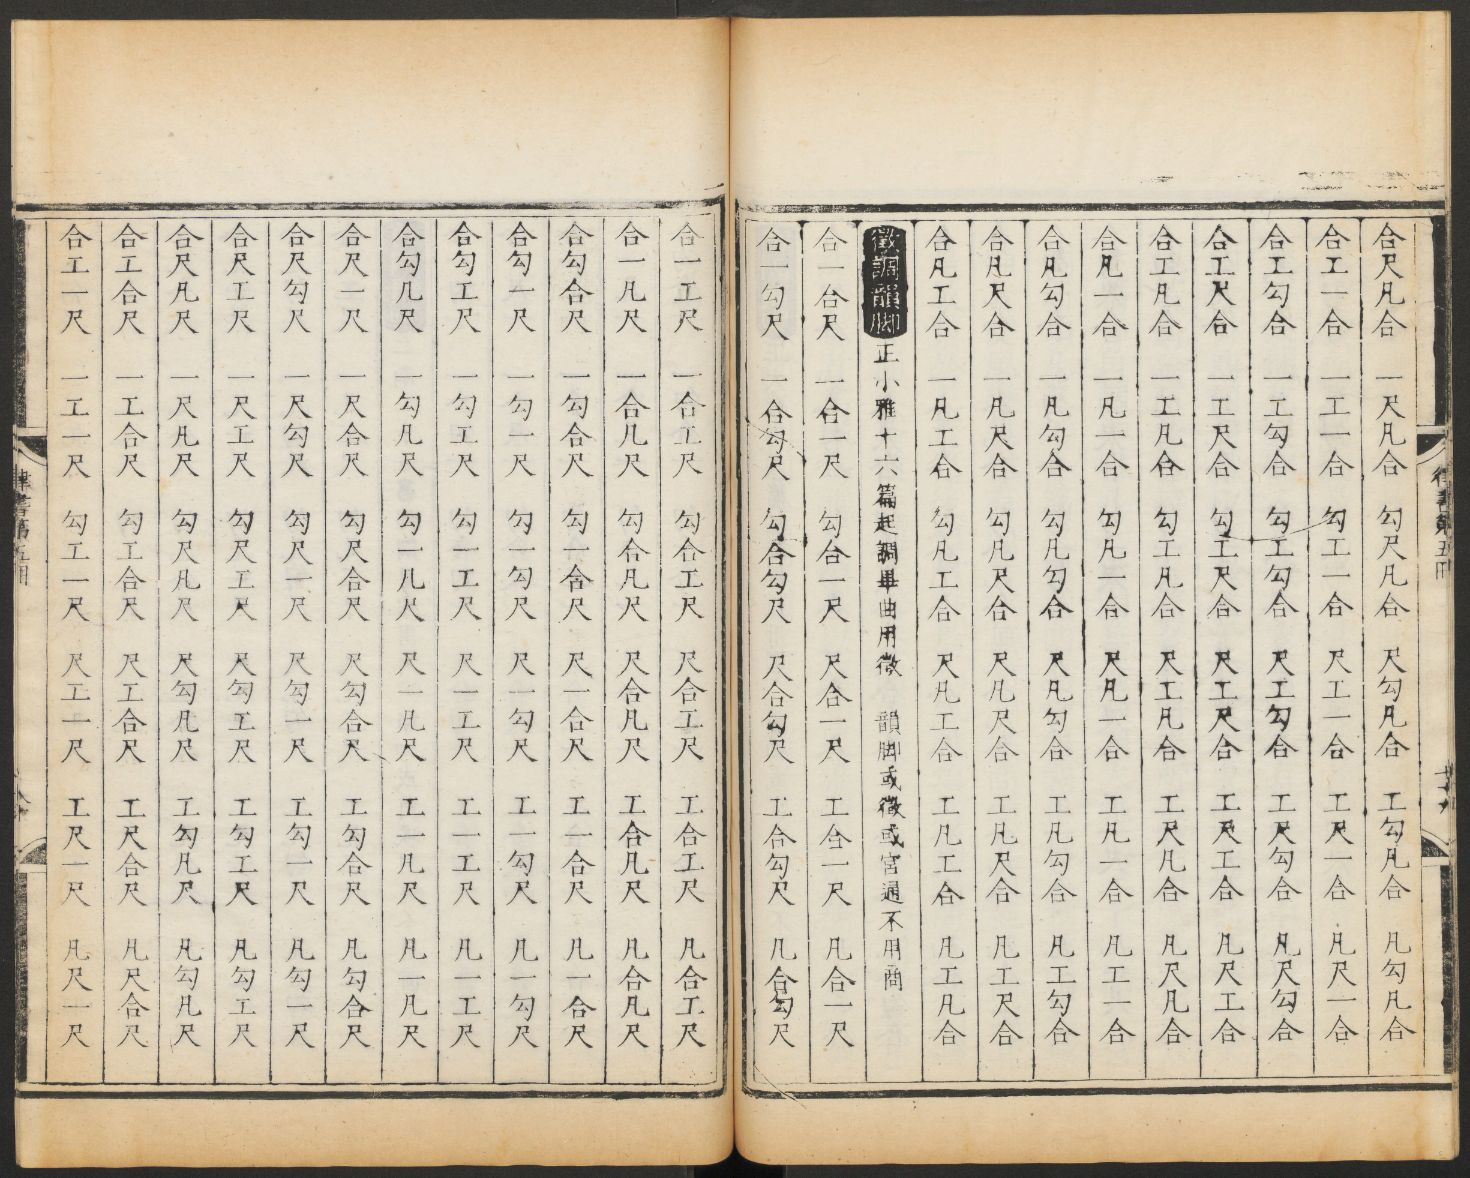 合尺凡合 一尺凡合 勾尺凡合 尺勾凡合 工勾凡合 凡勾凡合
合工一合 一工一合 勾工一合 尺工一合 工尺一合 凡尺一合
合工勾合 一工勾合 勾工勾合 尺工勾合 工尺勾合 凡尺勾合
合工尺合 一工尺合 勾工尺合 尺工尺合 工尺工合 凡尺工合
合工凡合 一工凡合 勾工凡合 尺工凡合 工尺凡合 凡尺凡合
合凡一合 一凡一合 勾凡一合 尺凡一合 工凡一合 凡工一合
合凡勾合 一凡勾合 勾凡勾合 尺凡勾合 工凡勾合 凡工勾合
合凡尺合 一凡尺合 勾凡尺合 尺凡尺合 工凡尺合 凡工尺合
合凡工合 一凡工合 勾凡工合 尺凡工合 工凡工合 凡工凡合
徵調韻脚 正小雅十六篇起調畢曲用徵 韻脚或徵或宮通不用商
合一合尺 一合一尺 勾合一尺 尺合一尺 工合一尺 凡合一尺
合一勾尺 一合勾尺 勾合勾尺 尺合勾尺 工合勾尺 凡合勾尺
合一工尺 一合工尺 勾合工尺 尺合工尺 工合工尺 凡合工尺
合一凡尺 一合凡尺 勾合凡尺 尺合凡尺 工合凡尺 凡合凡尺
合勾合尺 一勾合尺 勾一合尺 尺一合尺 工一合尺 凡一合尺
合勾一尺 一勾一尺 勾一勾尺 尺一勾尺 工一勾尺 凡一勾尺
合勾工尺 一勾工尺 勾一工尺 尺一工尺 工一工尺 凡一工尺
合勾凡尺 一勾凡尺 勾一凡尺 尺一凡尺 工一凡尺 凡一凡尺
合尺一尺 一尺合尺 勾尺合尺 尺勾合尺 工勾合尺 凡勾合尺
合尺勾尺 一尺勾尺 勾尺一尺 尺勾一尺 工勾一尺 凡勾一尺
合尺工尺 一尺工尺 勾尺工尺 尺勾工尺 工勾工尺 凡勾工尺
合尺凡尺 一尺凡尺 勾尺凡尺 尺勾凡尺 工勾凡尺 凡勾凡尺
合工合尺 一工合尺 勾工合尺 尺工合尺 工尺合尺 凡尺合尺
合工一尺 一工一尺 勾工一尺 尺工一尺 工尺一尺 凡尺一尺